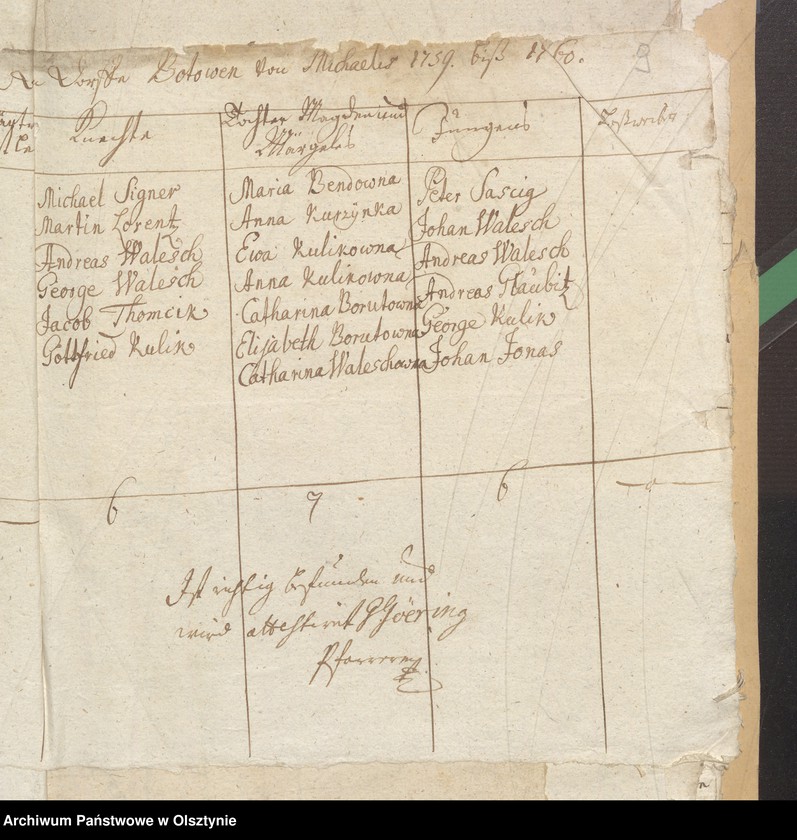 Dorffe Botowen von Michaelis 1759. biß 1760.
Knechte
Töchter Mägde und
Märgels
Jungens
Loßweiber
Michael Signer
Martin Lorentz
Andreas Walesch
George Walesch
Jacob Thomcik
Gottfried Kulik
6
Maria Bendowna
Anna Kurzÿnka
Ewa Kulikowna
Anna Kulikowna
Catharina Borutowna
Elisabeth Borutowna
Catharina Waleschowna
7
Peter Sascig
Johan Walesch
Andreas Walesch
Andreas Glaubitz
George Kulik
Johan Jonas
6
Ist richtig befunden und
wird attestiret Göering
Pfarrer
Archiwum Państwowe w Olsztynie